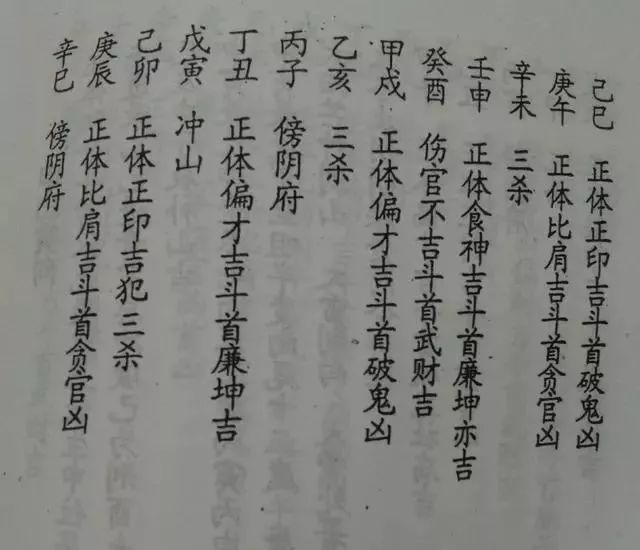 己巳 正体正印吉斗首破鬼凶
庚午 正体比肩吉斗首贪官凶
辛未 三杀
壬申 正体食神吉斗首廉坤亦吉
癸酉 伤官不吉斗首武财吉
甲戍 正体偏才吉斗首破鬼凶
乙亥 三杀
丙子 傍阴府
丁丑 正体偏才吉斗首廉坤吉
戊寅 冲山
己卯 正体正印吉犯三杀
庚辰 正体比肩吉斗首贪官凶
辛巳 傍阴府